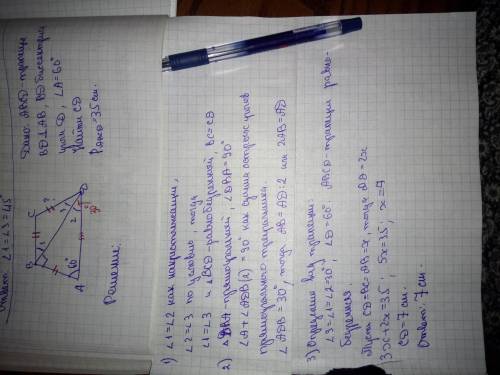 Ответ: ∠1=∠3=45°
Дано: ABCD-трапеция
BD⊥AB, BD биссектриса
угла D, ∠A=60°
Найти CD
P ABCD=35 см.
B
C
A
D
1
2
3
60°
?
Решение:
1) ∠1=∠2 как накрестлежащие,
∠2=∠3 по условию, тогда
∠1=∠3 и ΔBCD-равнобедренный, BC=CD
2) ΔDBA прямоугольный; ∠DBA=90°
∠A+∠ADB(2)=90° как сумма острых углов
прямоугольного треугольника.
∠ADB=30°, тогда AB=AD:2 или 2AB=AD
3) Определяю вид трапеции:
∠3=∠1=∠2=30°; ∠D=60°. ABCD-трапеция равно-
бедренная.
Пусть CD=BC=AB=x, тогда AD=2x
3x+2x=35; 5x=35; x=7
CD=7 см.
Ответ: 7 см.